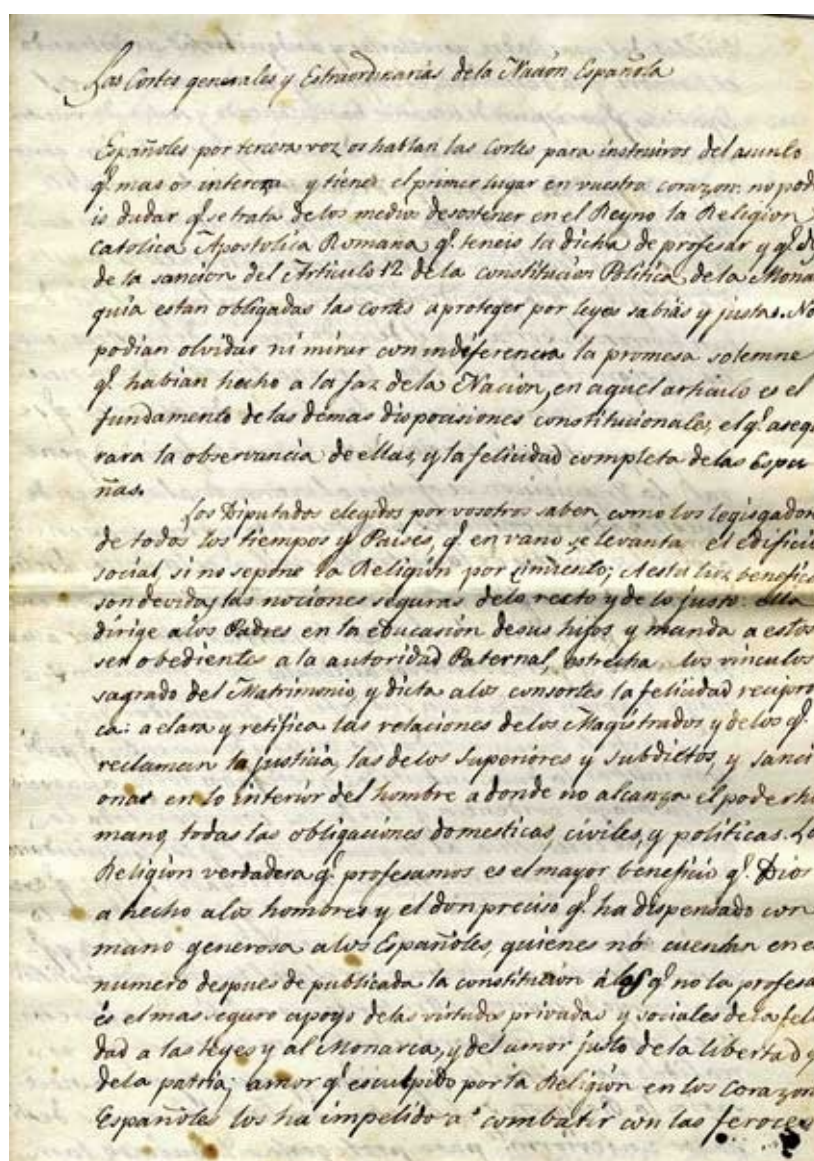 Las Cortes generales y Estraordinarias de la Nacion Española
Españoles por tercera voz os hablan las Cortes para instruiros del asunto
q.e mas os intereza y tiene el primer lugar en vuestro corazon: no pod
is dudar q.e se trata de los medios de sostener en el Reyno la Religion
Catolica Apostolica Romana q.e teneis la dicha de profesar y q.e
de la sancion del Articulo 12 de la constitucion Politica de la Mona
quia estan obligadas las cortes a proteger por leyes sabias y justas. No
podian olvidar ni mirar con indiferencia la promesa solemne
q.e habian hecho a la faz de la Nacion, en aquel articulo es el
fundamento de las demas disposiciones constitucionales, el q.e asegu
rara la observancia de ellas, y la felicidad completa de las Espa
ñas.
Los Diputados elegidos por vosotros saben, como los legisgadore
de todos los tiempos y Paises, q.e en vano se levanta el edificio
social, si no se pone la Religion por cimiento; A esta luz benefica
son devidas las nociones seguras de lo recto y de lo justo: ella
dirige a los Padres en la educasión de sus hijos y manda a estos
ser obedientes a la autoridad Paternal, estrecha los vinculos
sagrado del Matrimonio, y dicta a los consortes la felicidad recipro
ca: aclara y retifica las relaciones de los Magistrados y de los q.e
reclaman la justicia, las de los Superiores y subdictos, y sanci
ona en lo interior del hombre a donde no alcanza el poder hu
mano, todas las obligaciones domesticas, civiles, y politicas. La
Religion verdadera q.e profesamos es el mayor beneficio q.e Dios
a hecho a los hombres y el don preciso q.e ha dispensado con
mano generosa a los Españoles, quienes no cuentan en e
numero despues de publicada la constitucion á los q.e no la profesa
es el mas seguro apoyo de las virtudes privadas y sociales de la feli
dad a las leyes y al Monarca, y del amor justo de la libertad y
de la patria; amor q.e esculpido por la Religion en los corazon
Españoles los ha impelido a combatir con las feroces